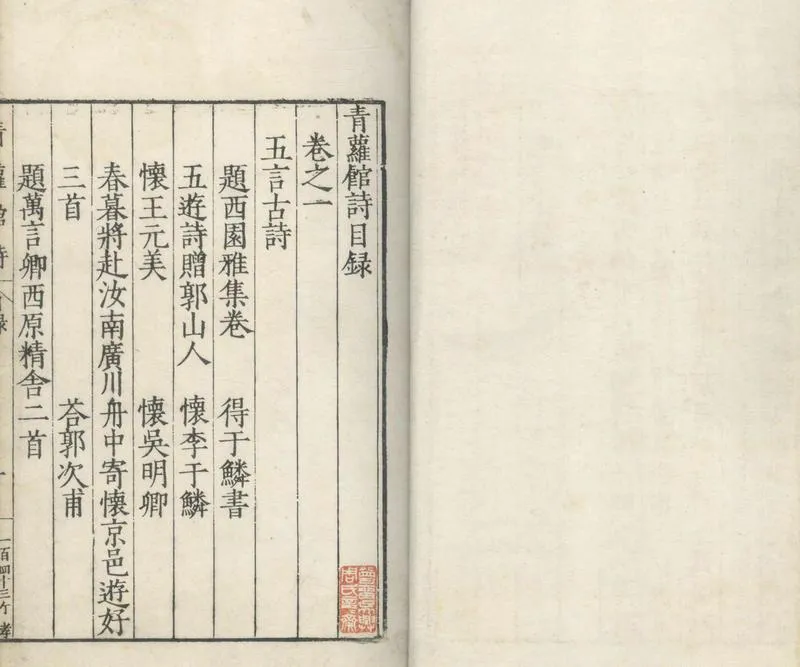 青蘿館詩目録
卷之一
五言古詩
題西園雅集卷 得于鱗書
五遊詩贈郭山人 懷李于鱗
懷王元美 懷吳明卿
春暮將赴汝南廣川舟中寄懷京邑遊好
三首 荅郭次甫
題萬言卿西原精舍二首
青蘿館詩 目録 一